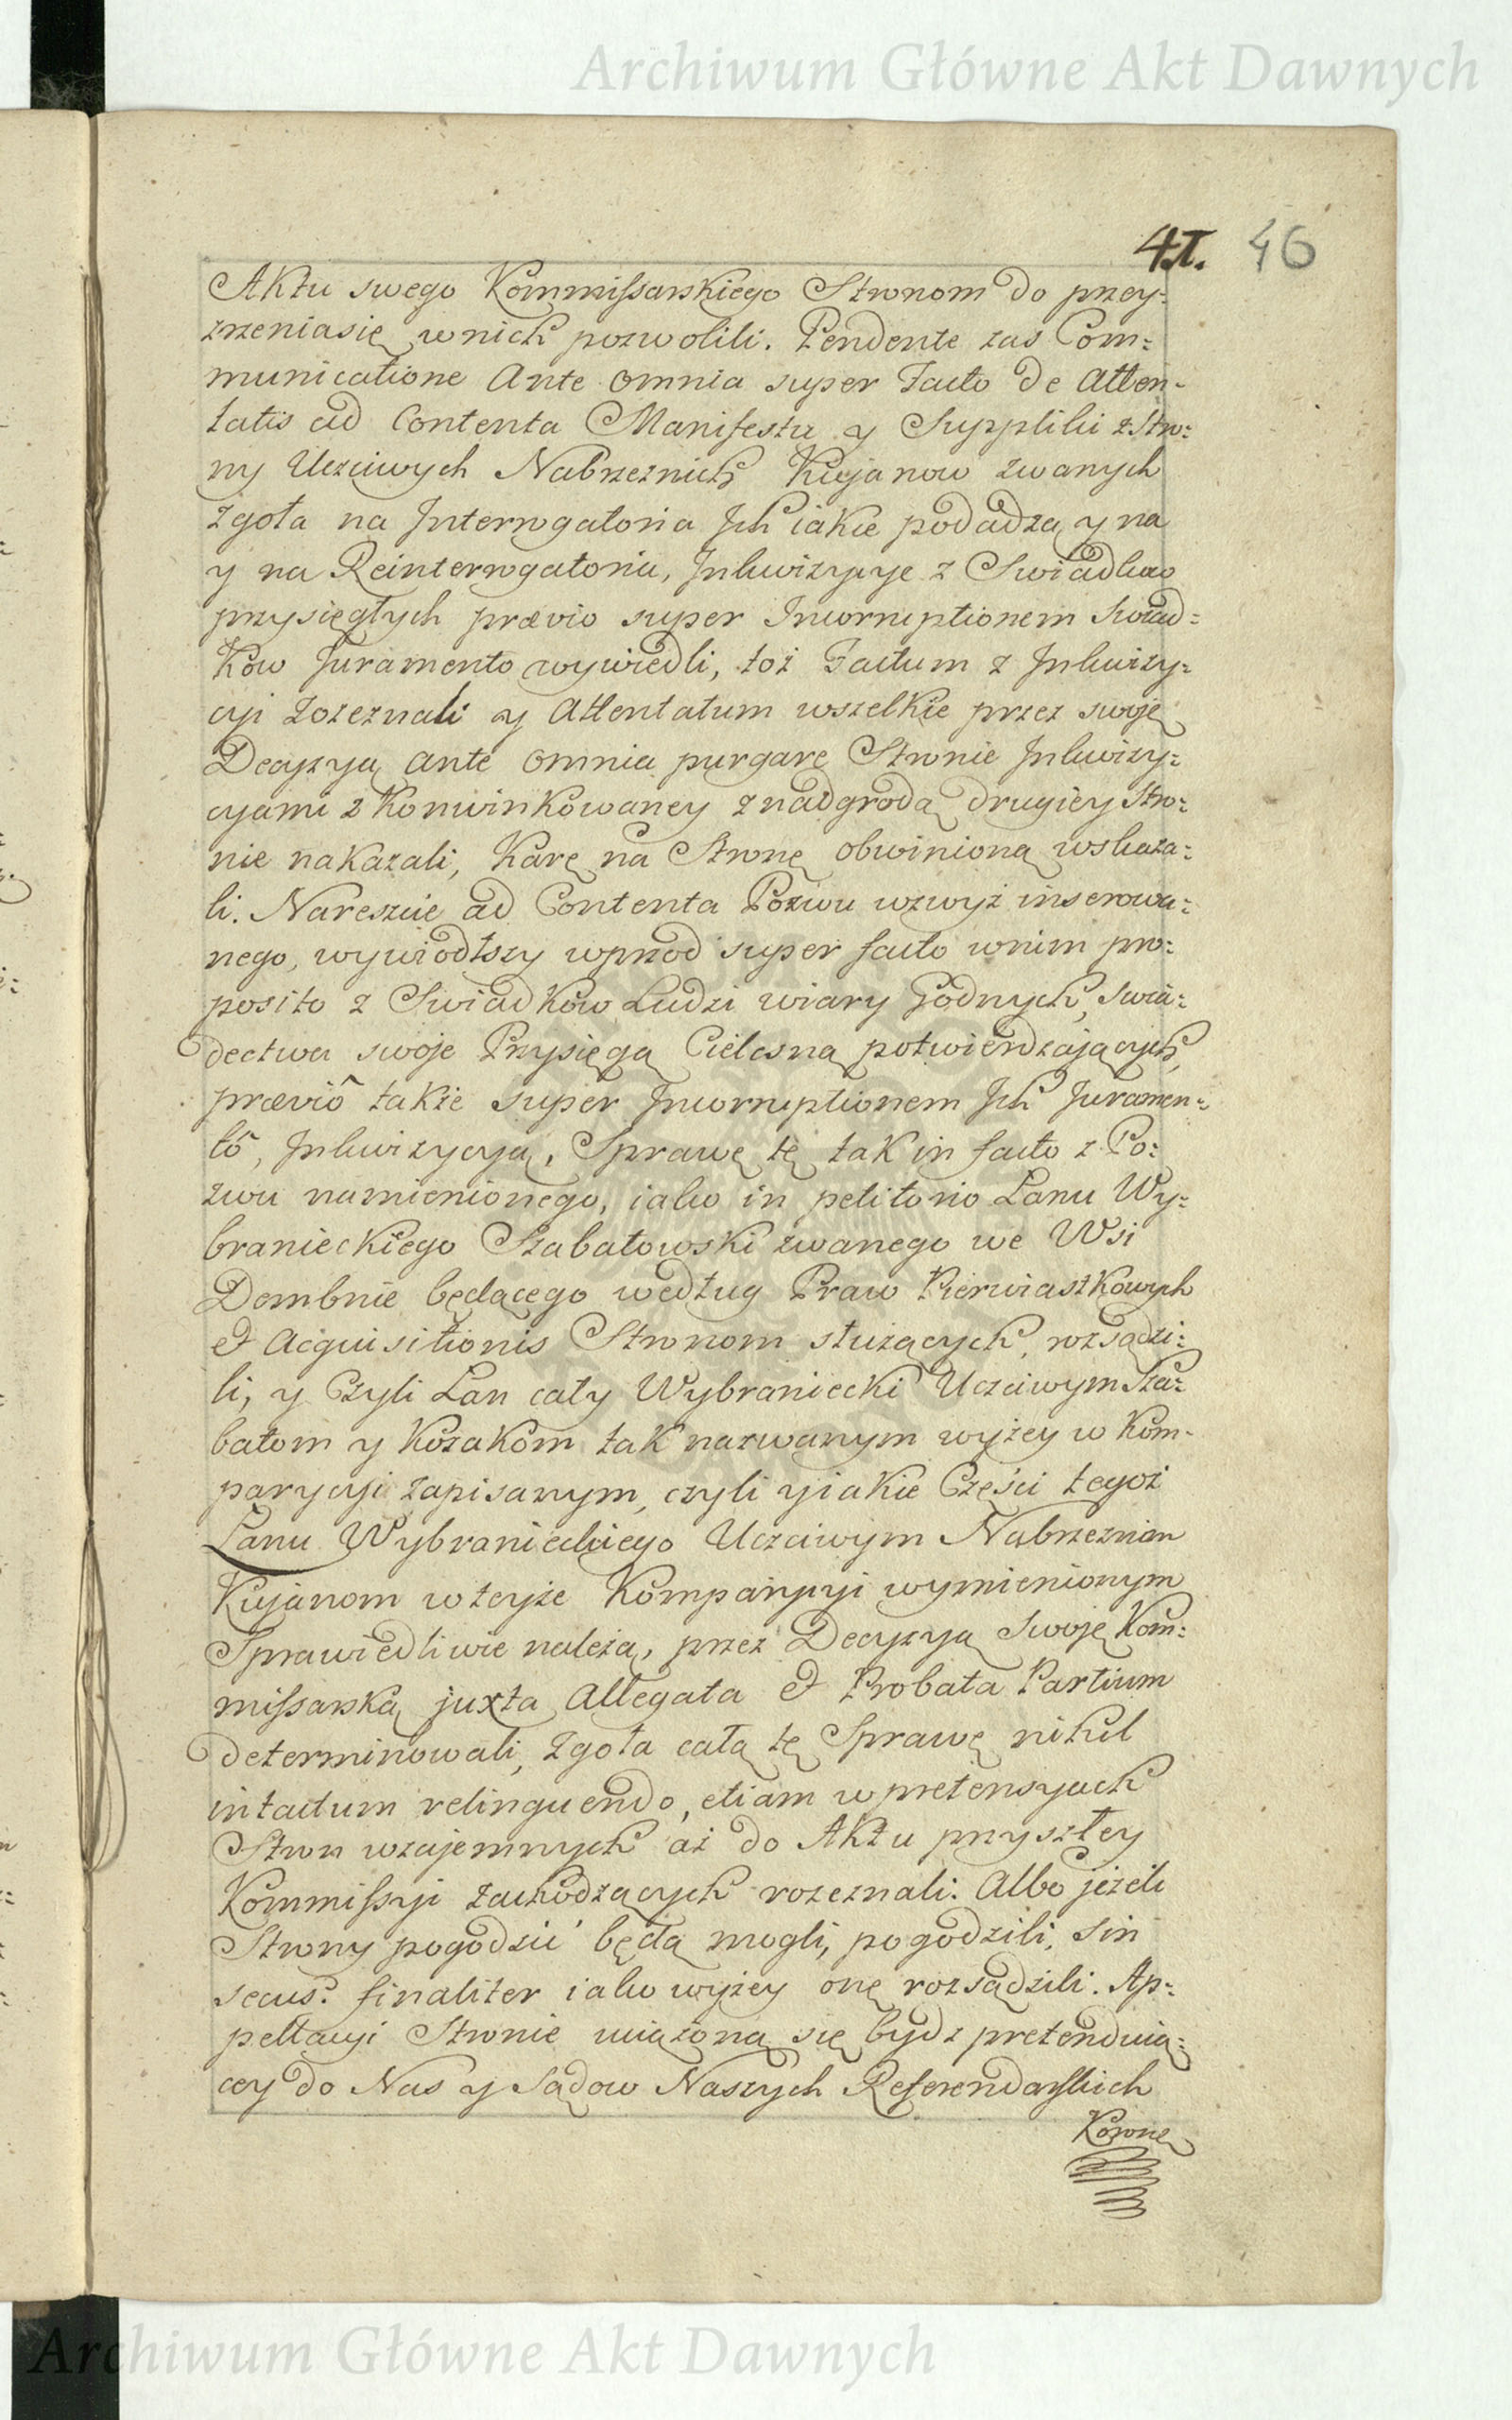 Archiwum Główne Akt Dawnych
41. 46
Aktu swego Kommissarskiego Stronom do przey-
zrzeniasię wnich pozwolili. Pendente zas Com-
municatione Ante omnia super Facto de Atten-
tatis ad Contenta Manifestu y Suppliki z Stro-
ny Uczciwych Nabrzeznich Kujanow zwanych
zgoła na Interrogatoria Ich iakie podadzą y na
y na Reinterrogatoria, Inkwizycye z Swiadkow
przysięgłych prævio super Incorruptionem Swiad-
kow Juramento wywiedli, toż Factum z Inkwizy-
cyi rozeznali y Attentatum wszelkie przez swoję
Decyzyą ante omnia purgare Stronie Inkwizy-
cyami zKonwinkowaney znadgrodą drugiey Stro-
nie nakazali, Karę na Stronę obwinioną wskaza-
li. Nareszcie ad Contenta Pozwu wzwyż inserowa-
nego, wywiodłszy wprzod super facto wnim pro-
posito z Swiadkow Ludzi wiary Godnych, Swia-
dectwa swoje Przysięgą Cielesną potwierdzających,
præviô także super Incorruptionem Ich Juramen-
tô, Inkwizycyą, Sprawę tę tak in facto z Po-
zwu namienionego, iako in petitorio Łanu Wy-
branieckiego Szabatowski zwanego we Wsi
Dembnie będącego według Praw Pierwiastkowych
et Acquisitionis Stronom służących, rozsądzi-
li, y Czyli Łan cały Wybraniecki Uczciwym Sza-
batom y Kozakom tak nazwanym wyżey w Kom-
parycyi zapisanym, czyli yiakie Części tegoż
Łanu Wybranieckiego Uczciwym Nabrzeznim
Kujanom wteyże Komparycyi wymienionym
Sprawiedliwie należą, przez Decyzyą Swoję Kom-
missarską juxta Allegata et Probata Partium
determinowali, zgoła całą tę Sprawę nihil
intactum relinquendo, etiam wpretensyach
Stron wzajemnych aż do Aktu przyszłey
Kommissyi zachodzących rozeznali. Albo jeżeli
Strony pogodzić będą mogli, pogodzili, sin
secus. finaliter iako wyżey onę rozsądzili. Ap-
pellacyi Stronie uciążoną się bydz pretenduią-
cey do Nas y Sądow Naszych Referendarskich
Koronę
Archiwum Główne Akt Dawnych